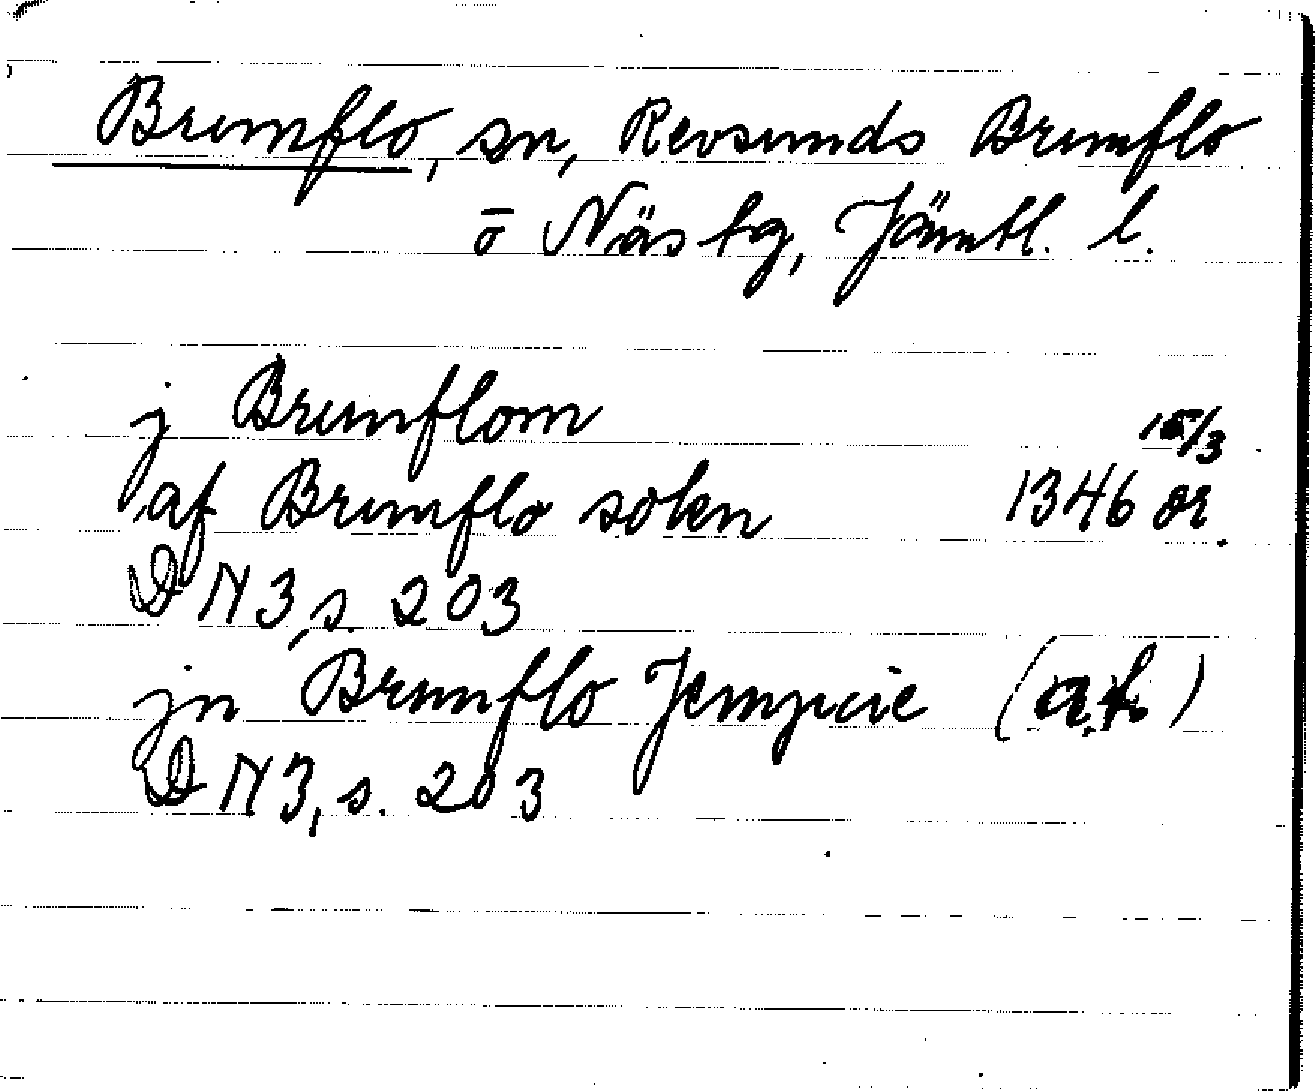 Brunflo, sn, Revsunds Brunflo
o̅ Näs tg, Jämtl. l.
j Brunflom 15/3
af Brunflo soken 1346 or.
DN 3, s. 203
jn Brunflo Jempcie (a.t.)
DN 3, s. 203